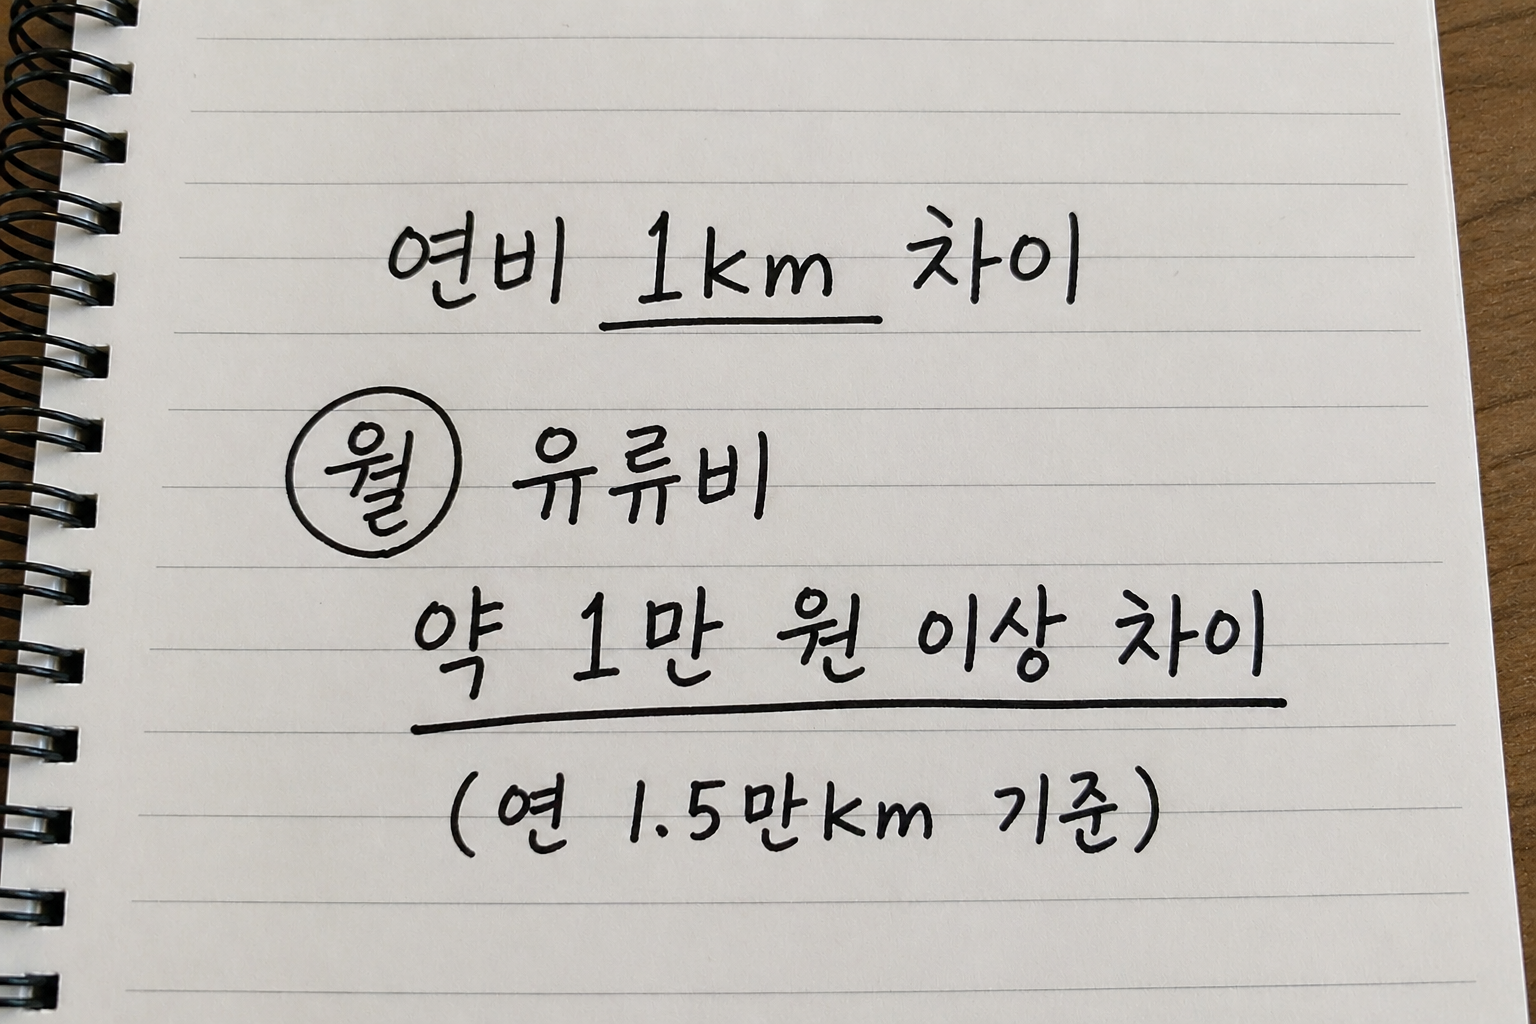 연비 1km 차이
월 유류비
약 1만 원 이상 차이
(연 1.5만km 기준)